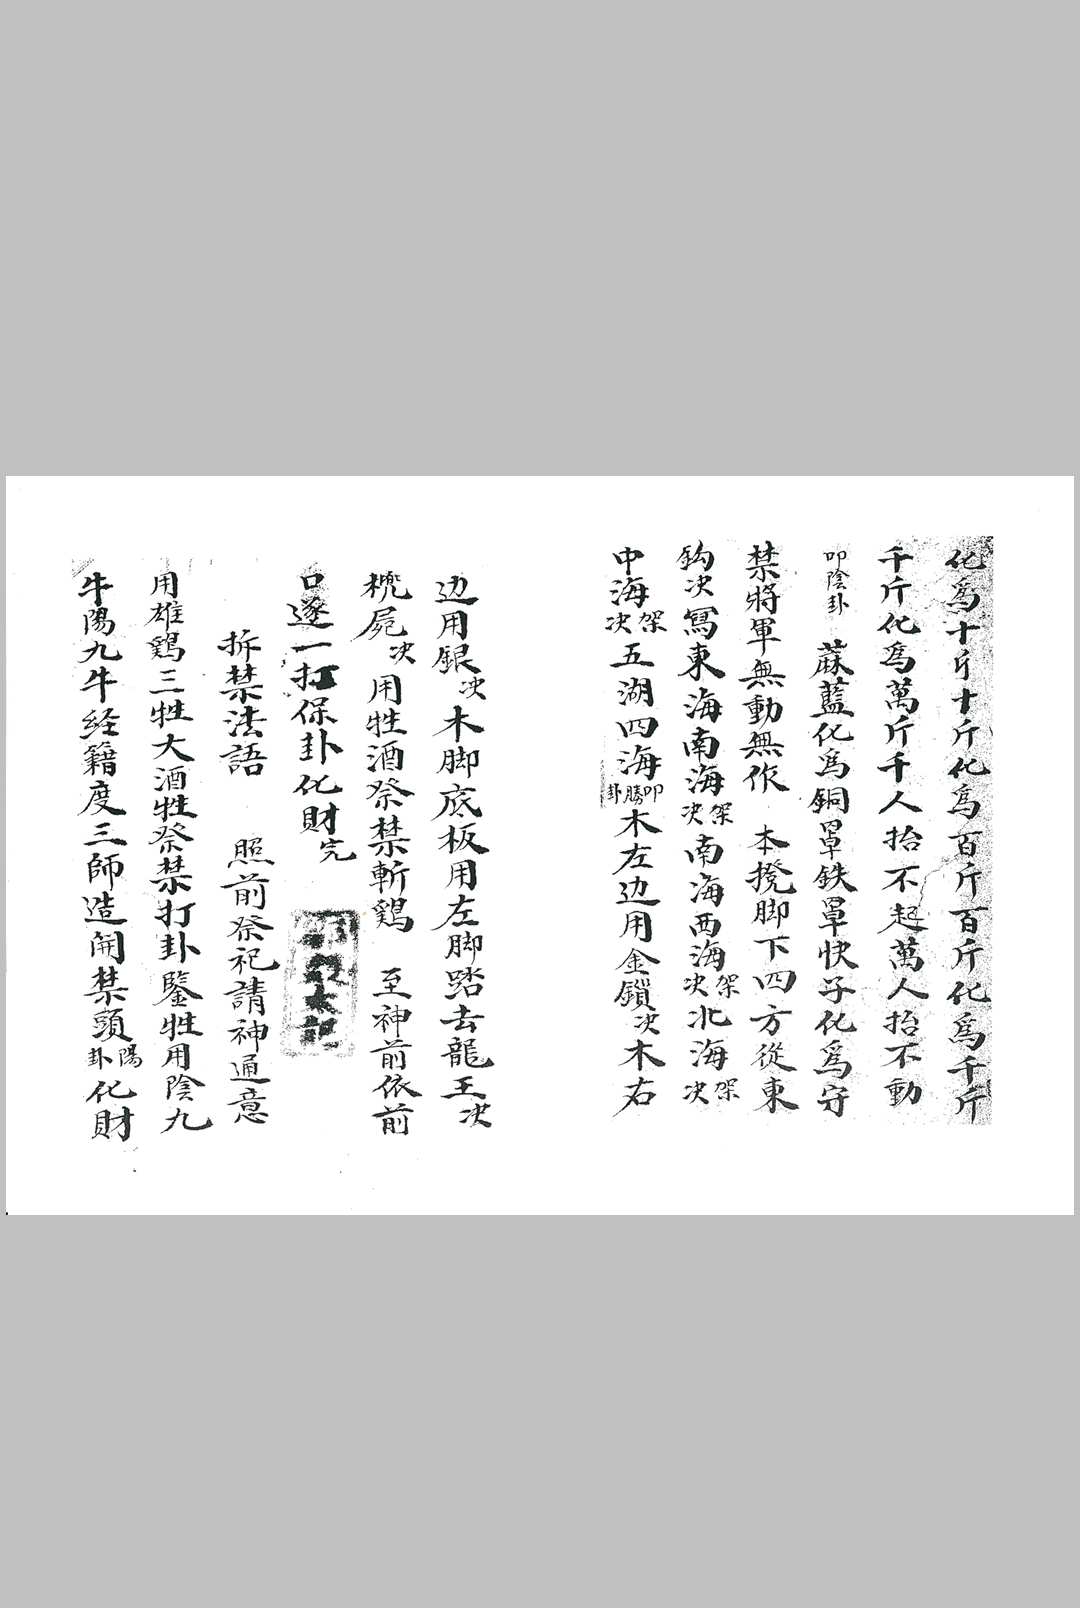 化爲十斤十斤化爲百斤百斤化爲千斤
千斤化爲萬斤千人抬不起萬人抬不動
叩陰卦 蔴藍化爲銅罩鉄罩快子化爲守
禁將軍無動無作 本搅脚下四方從東
鈎决寫東海南海架决南海西海架决北海架决
中海架决五湖四海叩勝卦木左边用金鎖决木右
边用銀决木脚底板用左脚踏去龍王决
屍决用牲酒祭禁斬鷄 至神前依前
口逐一打保卦化財完
拆禁法語 照前祭祀請神通意
用雄鷄三牲大酒牲祭禁打卦鑒牲用陰九
牛陽九牛经籍度三師造開禁頭陽卦化財